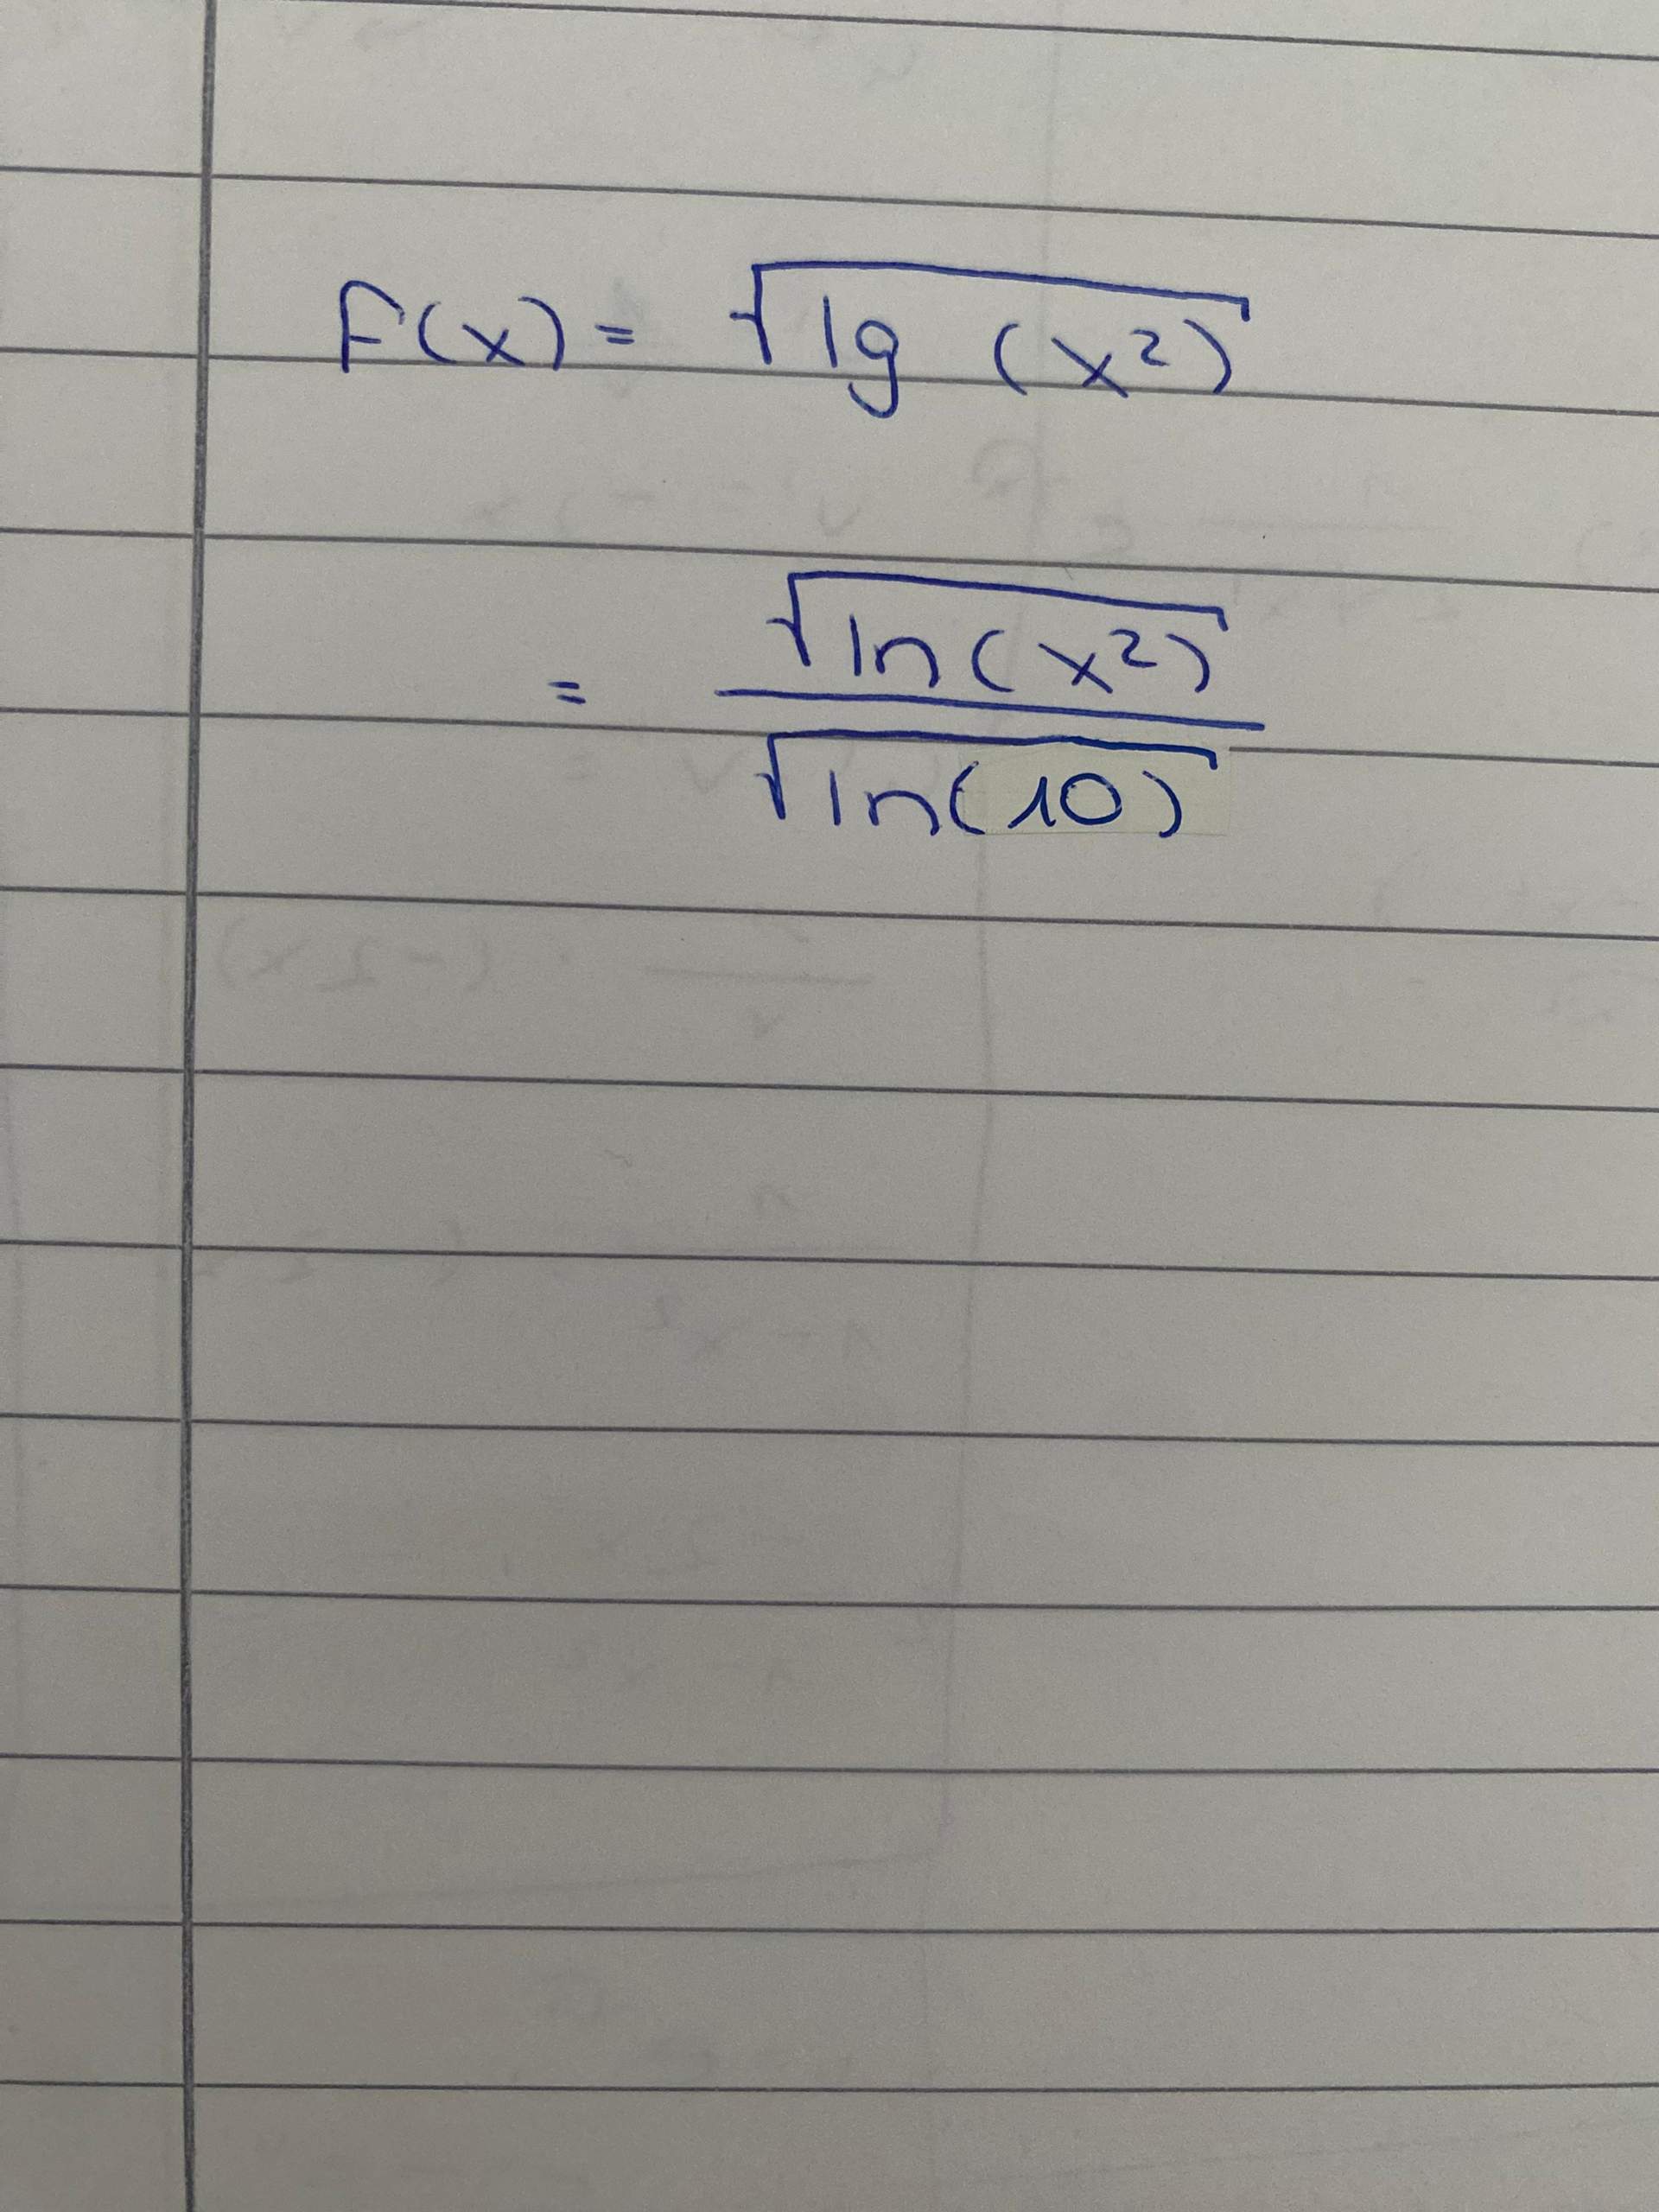 f(x) = √lg (x²)
= √ln(x²) / √ln(10)